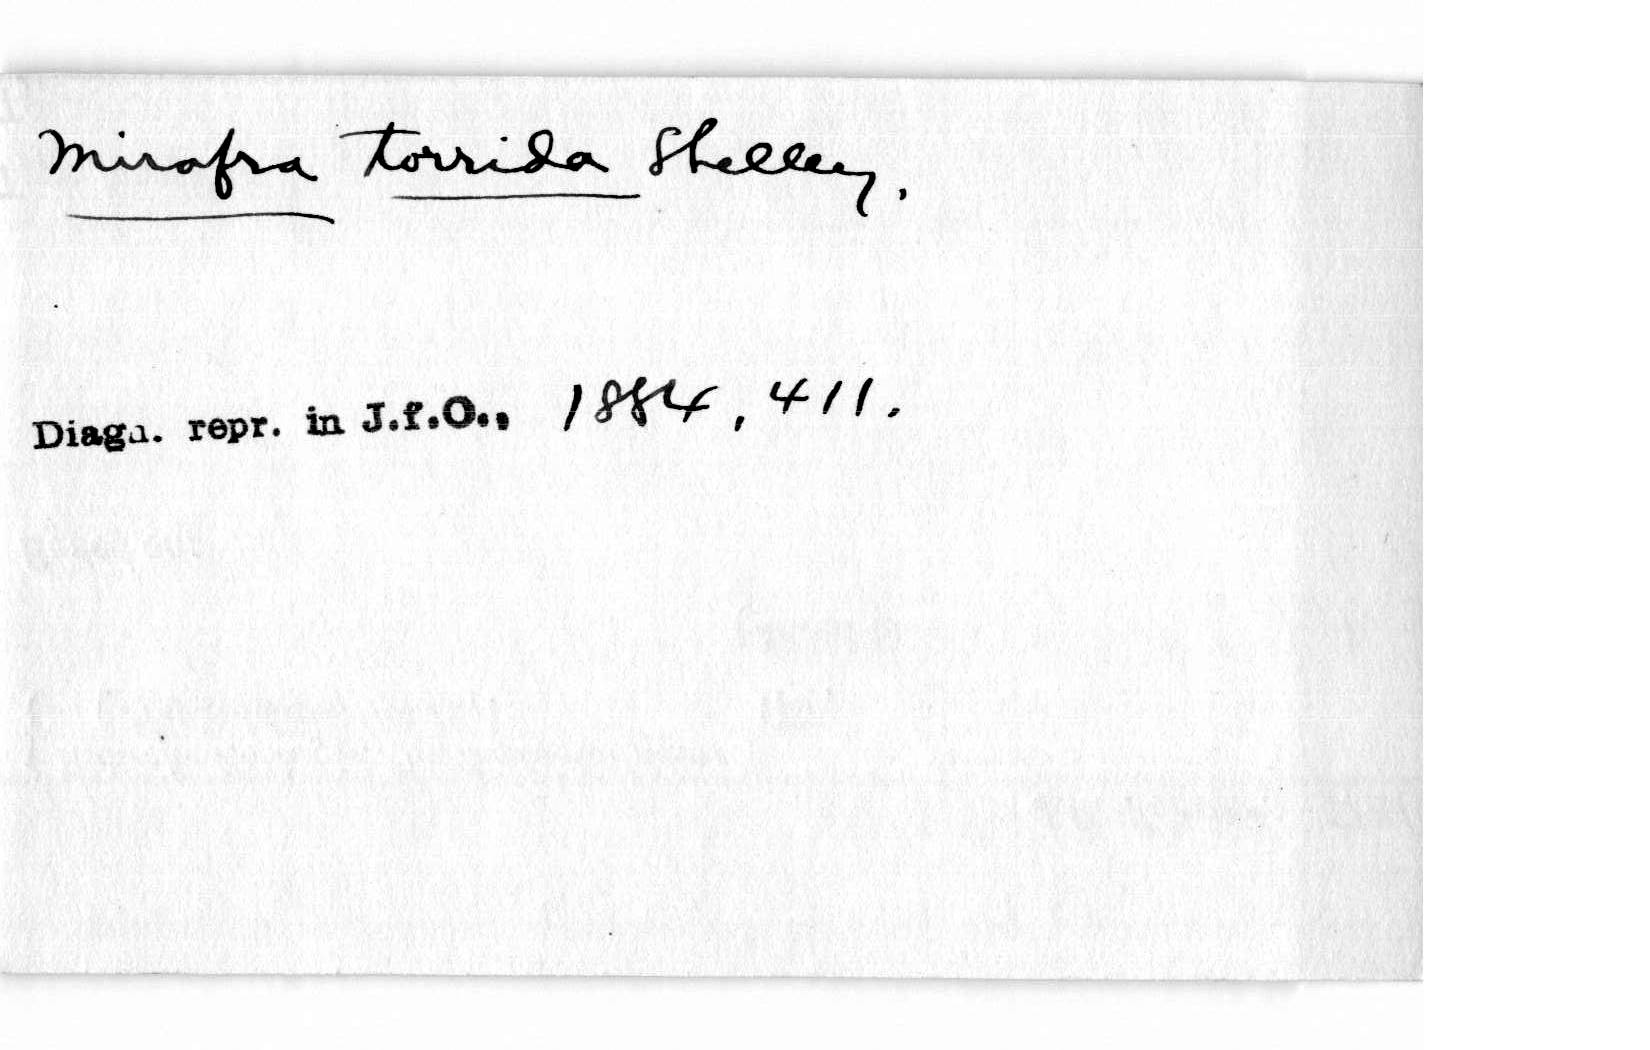 Mirafra torrida Shelley.
Diagn. repr. in J.f.O., 1884, 411.